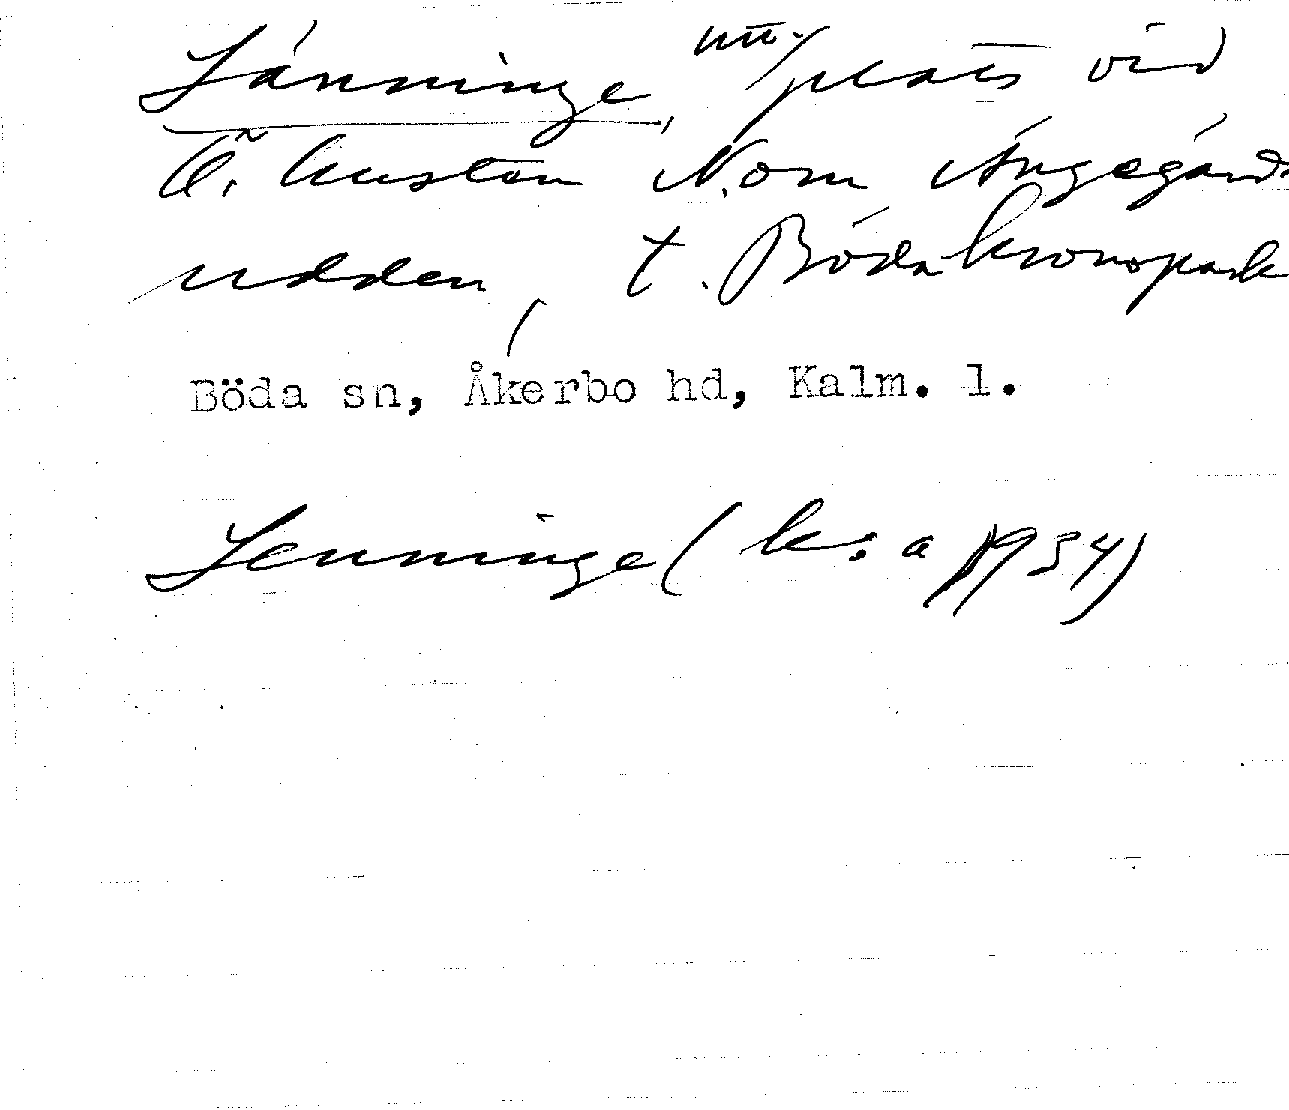 Länninge, plats vid
Ö. kusten N. om Ängegärds
udden, t. Böda kronopark
Böda sn, Åkerbo hd, Kalm. l.
Lenninge (k: a 1934)